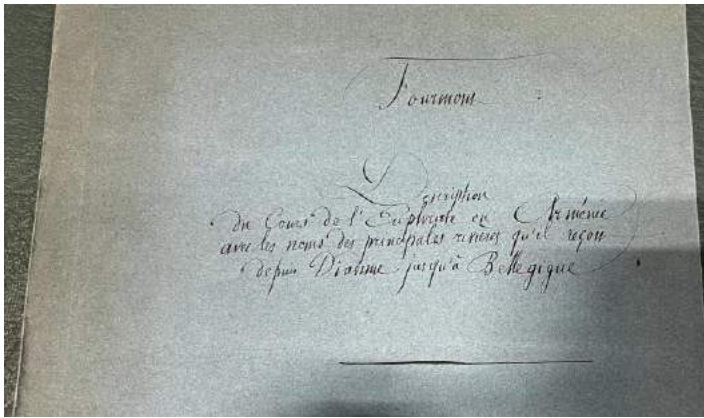 Fourmont
Description
du Cours de l'Euphrate en Arménie
avec les noms des principales rivières qu'il reçoit
depuis jusqu'à